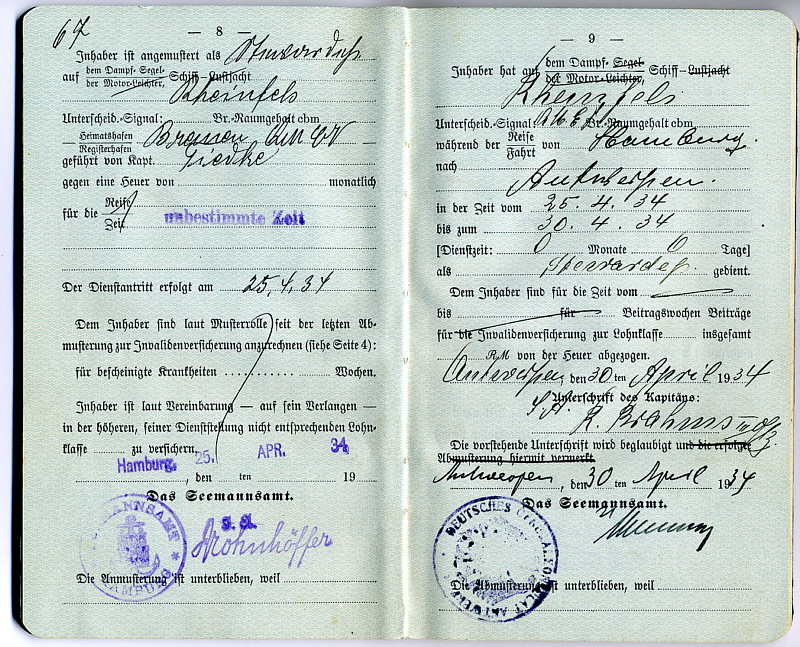 67
— 8 —
Inhaber ist angemustert als
auf dem Dampf- Segel- der Motor-Leichter, Schiff-Luftjacht
Rheinfels
Unterscheid.-Signal: Br.-Raumgehalt cbm
Heimatshafen Registerhafen Bremen
geführt von Kapt. Tiedke
gegen eine Heuer von monatlich
für die Reise Zeit unbestimmte Zeit
Der Dienstantritt erfolgt am 25.4.34
Dem Inhaber sind laut Musterrolle seit der letzten Ab-
musterung zur Invalidenversicherung anzurechnen (siehe Seite 4):
für bescheinigte Krankheiten .......... Wochen.
Inhaber ist laut Vereinbarung — auf sein Verlangen —
in der höheren, seiner Dienststellung nicht entsprechenden Lohn-
klasse zu versichern.
Hamburg, 25. APR. 34
, den ten 19
Das Seemannsamt.
s. a.
SEEMANNSAMT HAMBURG
Die Anmusterung ist unterblieben, weil
— 9 —
Inhaber hat auf dem Dampf- Segel- der Motor-Leichter, Schiff-Luftjacht
Rheinfels
Unterscheid.-Signal: Br.-Raumgehalt cbm
während der Reise Fahrt von Hamburg.
nach
Antwerpen.
in der Zeit vom 25. 4. 34
bis zum 30. 4. 34
[Dienstzeit: 0 Monate 6 Tage]
als gedient.
Dem Inhaber sind für die Zeit vom
bis für Beitragswochen Beiträge
für die Invalidenversicherung zur Lohnklasse insgesamt
RM von der Heuer abgezogen.
Antwerpen, den 30 ten April 1934
Unterschrift des Kapitäns:
Die vorstehende Unterschrift wird beglaubigt und die erfolgte
Abmusterung hiermit vermerkt
Antwerpen, den 30 ten April 1934
Das Seemannsamt.
DEUTSCHES GENERALKONSULAT ANTWERPEN
Die Abmusterung ist unterblieben, weil